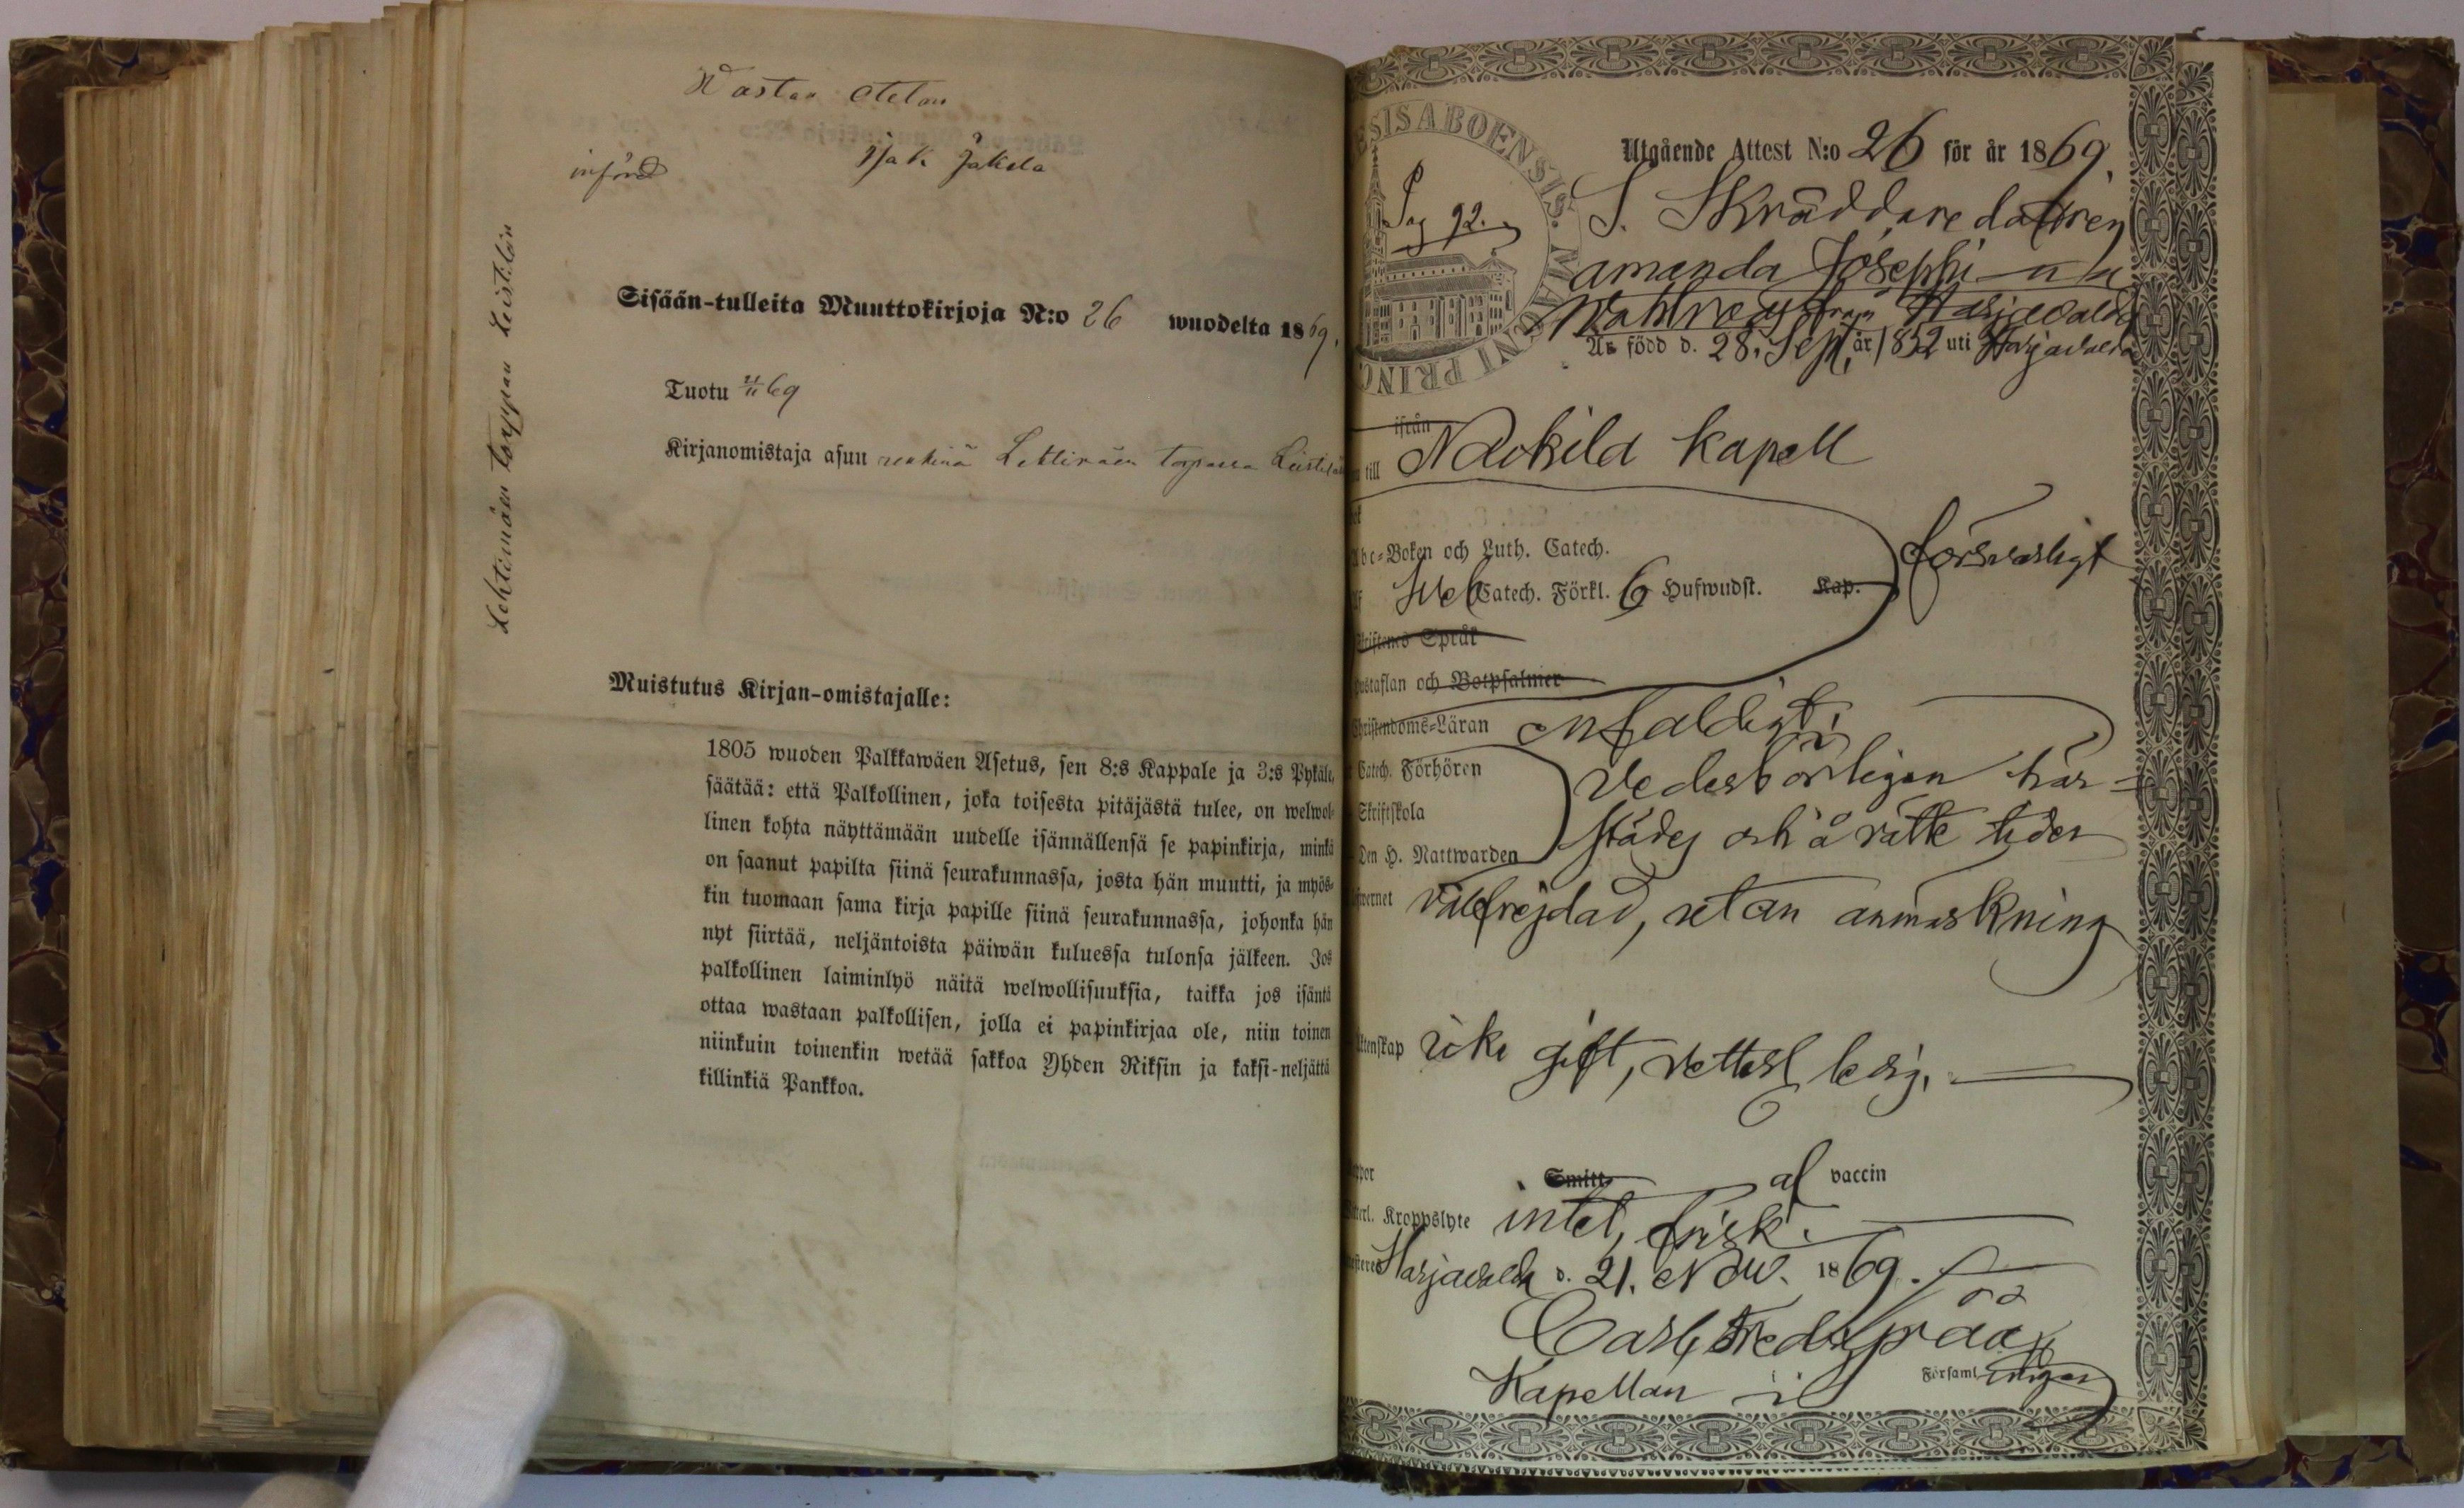 Wastan otetan
införd Isak Jakola
Lehtimäen torppan Leistilän
Sisään-tulleita Muuttokirjoja N:o 26 wuodelta 1869.
Tuotu 69
Kirjanomistaja asuu renkinä Lehtimäen torpassa
Muistutus Kirjan-omistajalle:
1805 wuoden Palkkawäen Asetus, sen 8:s Kappale ja 3:s Pykäle,
säätää: että Palkollinen, joka toisesta pitäjästä tulee, on welwol-
linen kohta näyttämään uudelle isännällensä se papinkirja, minkä
on saanut papilta siinä seurakunnassa, josta hän muutti, ja myös-
kin tuomaan sama kirja papille siinä seurakunnassa, johonka hän
nyt siirtää, neljäntoista päiwän kuluessa tulonsa jälkeen. Jos
palkollinen laiminlyö näitä welwollisuuksia, taikka jos isäntä
ottaa wastaan palkollisen, jolla ei papinkirjaa ole, niin toinen
niinkuin toinenkin wetää sakkoa Yhden Riksin ja kaksi-neljättä
killinkiä Pankkoa.
ESIS ABOENSIS. MAGNI PRINC
Pag 92.
Utgående Attest N:o 26 för år 1869.
S. Skräddare dottren
Amanda Josephina
från Harjavalda
Är född d. 28. Sept. år 1852 uti Harjavalda
ifrån
till Nackila Kapell
Abc-Boken och Luth. Catech. försvarligt
Catech. Förkl. 6 Hufwudst. Kap.
Skriftenes Språk
Hustaflan och Botpsalmer
Christendoms-Läran enfaldigt;
Catech. Förhören vederbörligen här-
Skriftskola
Den H. Nattwarden städes och å rätte tider
Lefwernet välfrejdad, utan anmärkning
Äktenskap icke gift, ledig.
Koppor Smitt. af vaccin
Kroppslyte intet, frisk.
Harjavalda d. 21. Nov. 1869.
Carl Fredr.
Kapellan i Församlingen